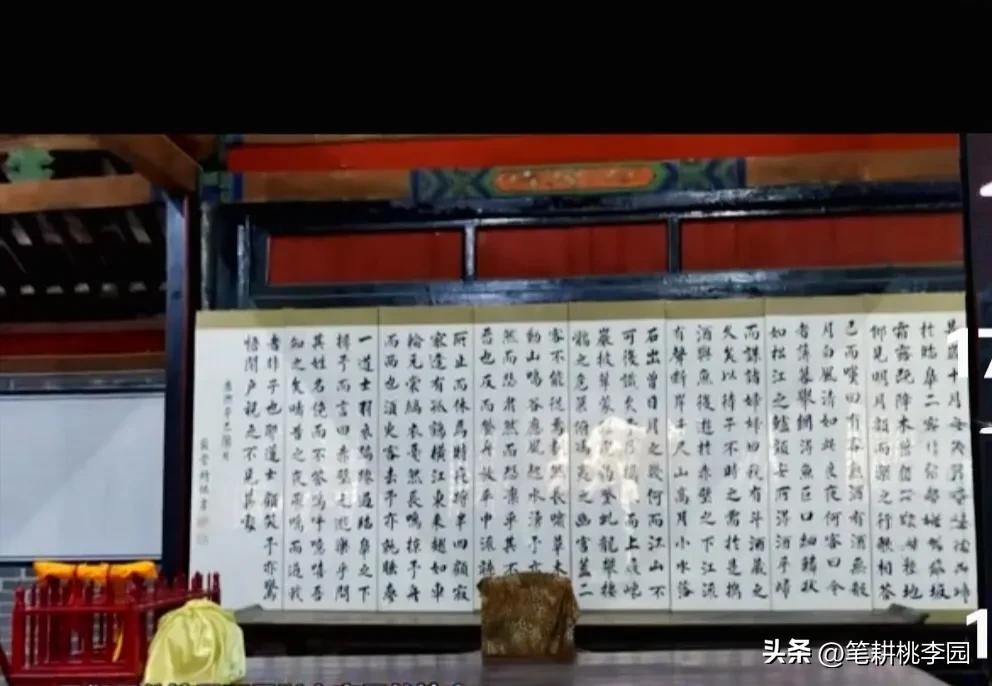 十月
於臨皋二客
霜露既降木葉
仰見明月顧而樂之行歌相答
已而嘆曰有客無酒有酒無殽
月白風清如此良夜何客曰今
者薄暮舉網得魚巨口細鱗狀
如松江之鱸顧安所得酒乎歸
而謀諸婦婦曰我有斗酒藏之
久矣以待子不時之需於是攜
酒與魚復遊於赤壁之下江流
有聲斷岸千尺山高月小水落
石出曾日月之幾何而江山不
可復識矣而上履巉
巖披蒙虎豹登虬龍攀棲
鶻之危巢俯馮夷之幽宮蓋二
客不能從焉劃然長嘯草木
動山鳴谷應風起水涌予亦
然而悲肅然而恐凜乎其不
留也反而登舟放乎中流聽
所止而休焉時夜將半四顧寂
寥適有孤鶴橫江東來翅如車
輪玄裳縞衣戛然長鳴掠予舟
而西也須臾客去予亦就睡夢
一道士羽衣蹁躚過臨皋之下
揖予而言曰赤壁之遊樂乎問
其姓名俛而不答嗚呼噫嘻吾
知之矣疇昔之夜飛鳴而過我
者非子也耶道士顧笑予亦驚
悟開戶視之不見其處
头条 @笔耕桃李园